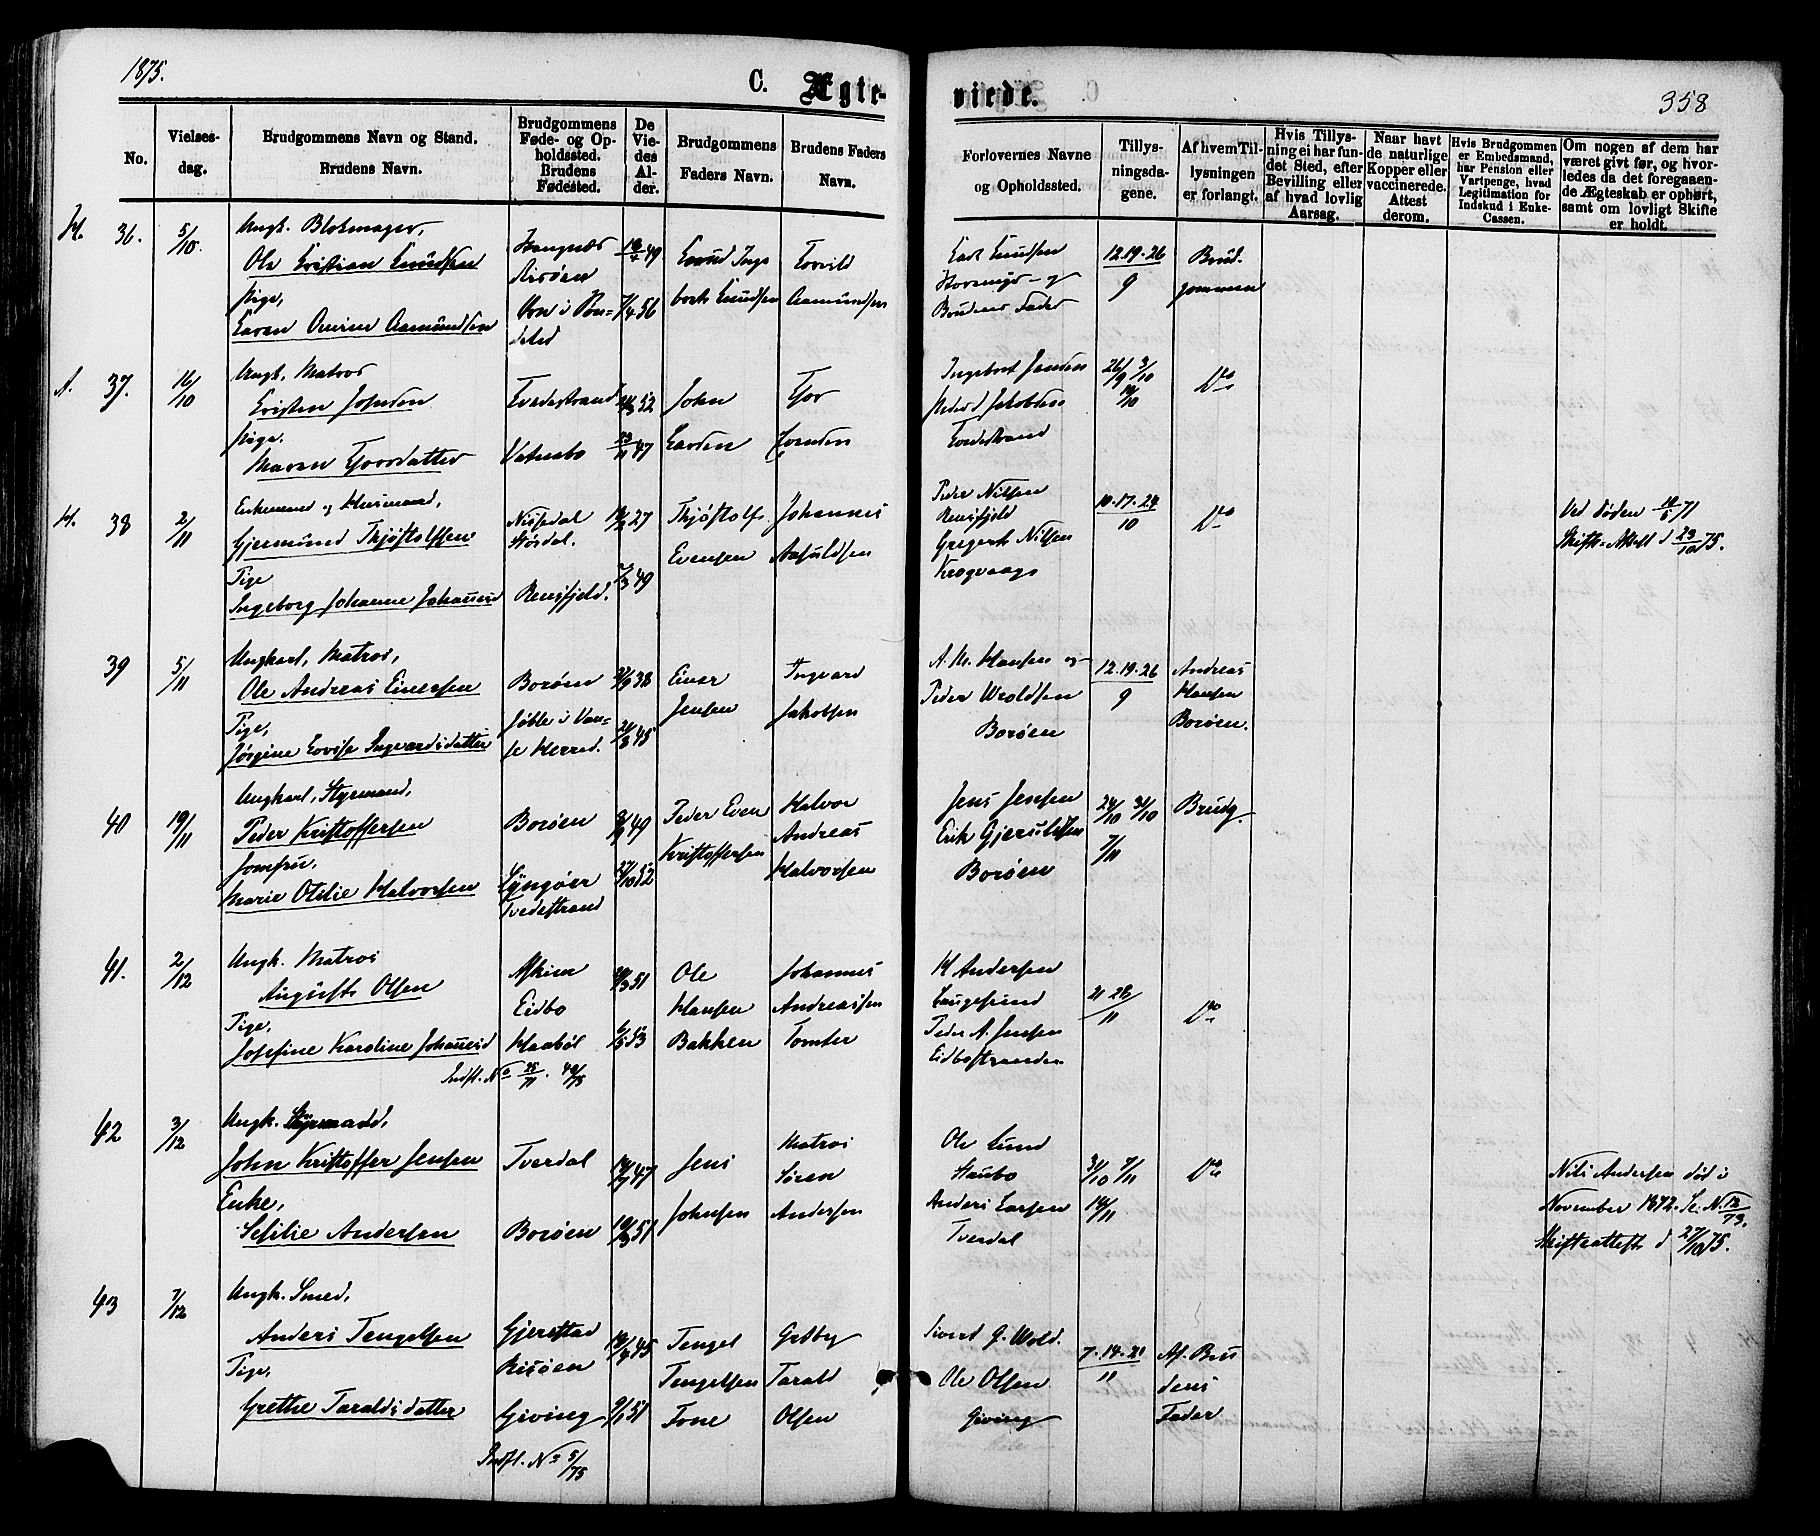 1875.
C. Ægte-
viede.
358
No.
Vielses-
dag.
Brudgommens Navn og Stand.
Brudens Navn.
Brudgommens
Føde- og Op-
holdssted.
Brudens
Fødested.
De
Vie-
des
Al-
der.
Brudgommens
Faders Navn.
Brudens Faders
Navn.
Forlovernes Navne
og Opholdssted.
Tillys-
ningsda-
gene.
Af hvem Til-
lysningen
er forlangt.
Hvis Tillys-
ning ei har fun-
det Sted, efter
Bevilling eller
af hvad lovlig
Aarsag.
Naar havt
de naturlige
Kopper eller
vaccinerede.
Attest
derom.
Hvis Brudgommen
er Embedsmand,
har Pension eller
Vartpenge, hvad
Legitimation for
Indskud i Enke-
Cassen.
Om nogen af dem har
været givt før, og hvor-
ledes da det foregaaen-
de Ægteskab er ophørt,
samt om lovligt Skifte
er holdt.
36. 5/10. Ungk. Blokmager,
Ole Cristian Knudsen
Pige,
Karen Amundsen
Risøen
7/4 56
Knudsen
Aamundsen
Knudsen
Brudens Fader
12.19.26
9
Brud-
gommen
37. 16/10 Ungk. Matros
Cristen Johnsen
Pige,
Maren Thorsdatter
Tvedestrand
52
Vatnebo
47
John
Larsen
Thor
Ingebret Jensen
Peder Jakobsen
Tvedestrand
26/9 3/10
10/10
Do
38 2/11 Enkemand og Husmand,
Gjermund Thjøstolfsen
Pige
Ingeborg Johanne Johannesd
Nissedal
27
Rensfjeld.
2/3 49
Thjøstolf
Evensen
Johannes
Aasuldsen
Peder Nilsen
Rensfjeld
Gregert Nilsen
Krogvaag
10.17.24
10
Do
Ved Døden 71
Skifte-Attest d 23/10 75.
39 5/11 Ungkarl, Matros,
Ole Andreas Einersen
Pige,
Jørgine Lovise Ingvardsdatter
Borøen
38
Jøble i Van-
se Herred.
45
Einer
Jensen
Ingvard
Jakobsen
A. M. Hansen og
Peder Wroldsen
Borøen
12.19.26
9
Andreas
Hansen
Borøen.
40 19/11 Ungkarl, Styrmand,
Peder Kristoffersen
Jomfru,
Marie Otilie Halvorsen
Borøen
49
Lyngøer
Tvedestrand
27/10 52
Peder Even
Kristoffersen
Halvor
Andreas
Halvorsen
Jens Jensen
Erik Gjerulfsen
Borøen
24/10 31/10
7/11
Brudg.
41. 2/12 Ungk. Matros
August Olsen
Pige,
Josefine Karoline Johannesd
Askier
Eidbo
51
Haabøl
53
Ole
Hansen
Bakken
Johannes
Andreassen
Tomter
H Andersen
Laugesund
Peder A. Jensen
Eidbostranden
21 28
11
Do
Indfl. No 25/71. 40/75
42 3/12 Ungk. Styrmand,
John Kristoffer Jensen
Enke,
Sesilie Andersen
Tverdal
47
Borøen
51
Jens
Johnsen
Matros
Søren
Andersen
Ole Lund
Staubo
Anders Larsen
Tverdal
31/10 7/11
14/11
Do
Nils Andersen død i
November 1872. Se. N. 12/73.
Skifteattest d 27/10 75.
43 7/12 Ungk. Smed,
Anders Tengelsen
Pige,
Grethe Taraldsdatter
Gjerstad
Risøen
45
Giving
51
Tengel
Tengelsen
Tone
Tarald
Olsen
Sivert G. Wold.
Ole Olsen
Giving
7.14.21
11
Af Bru
dens
Fader
Indfl. No 5/75